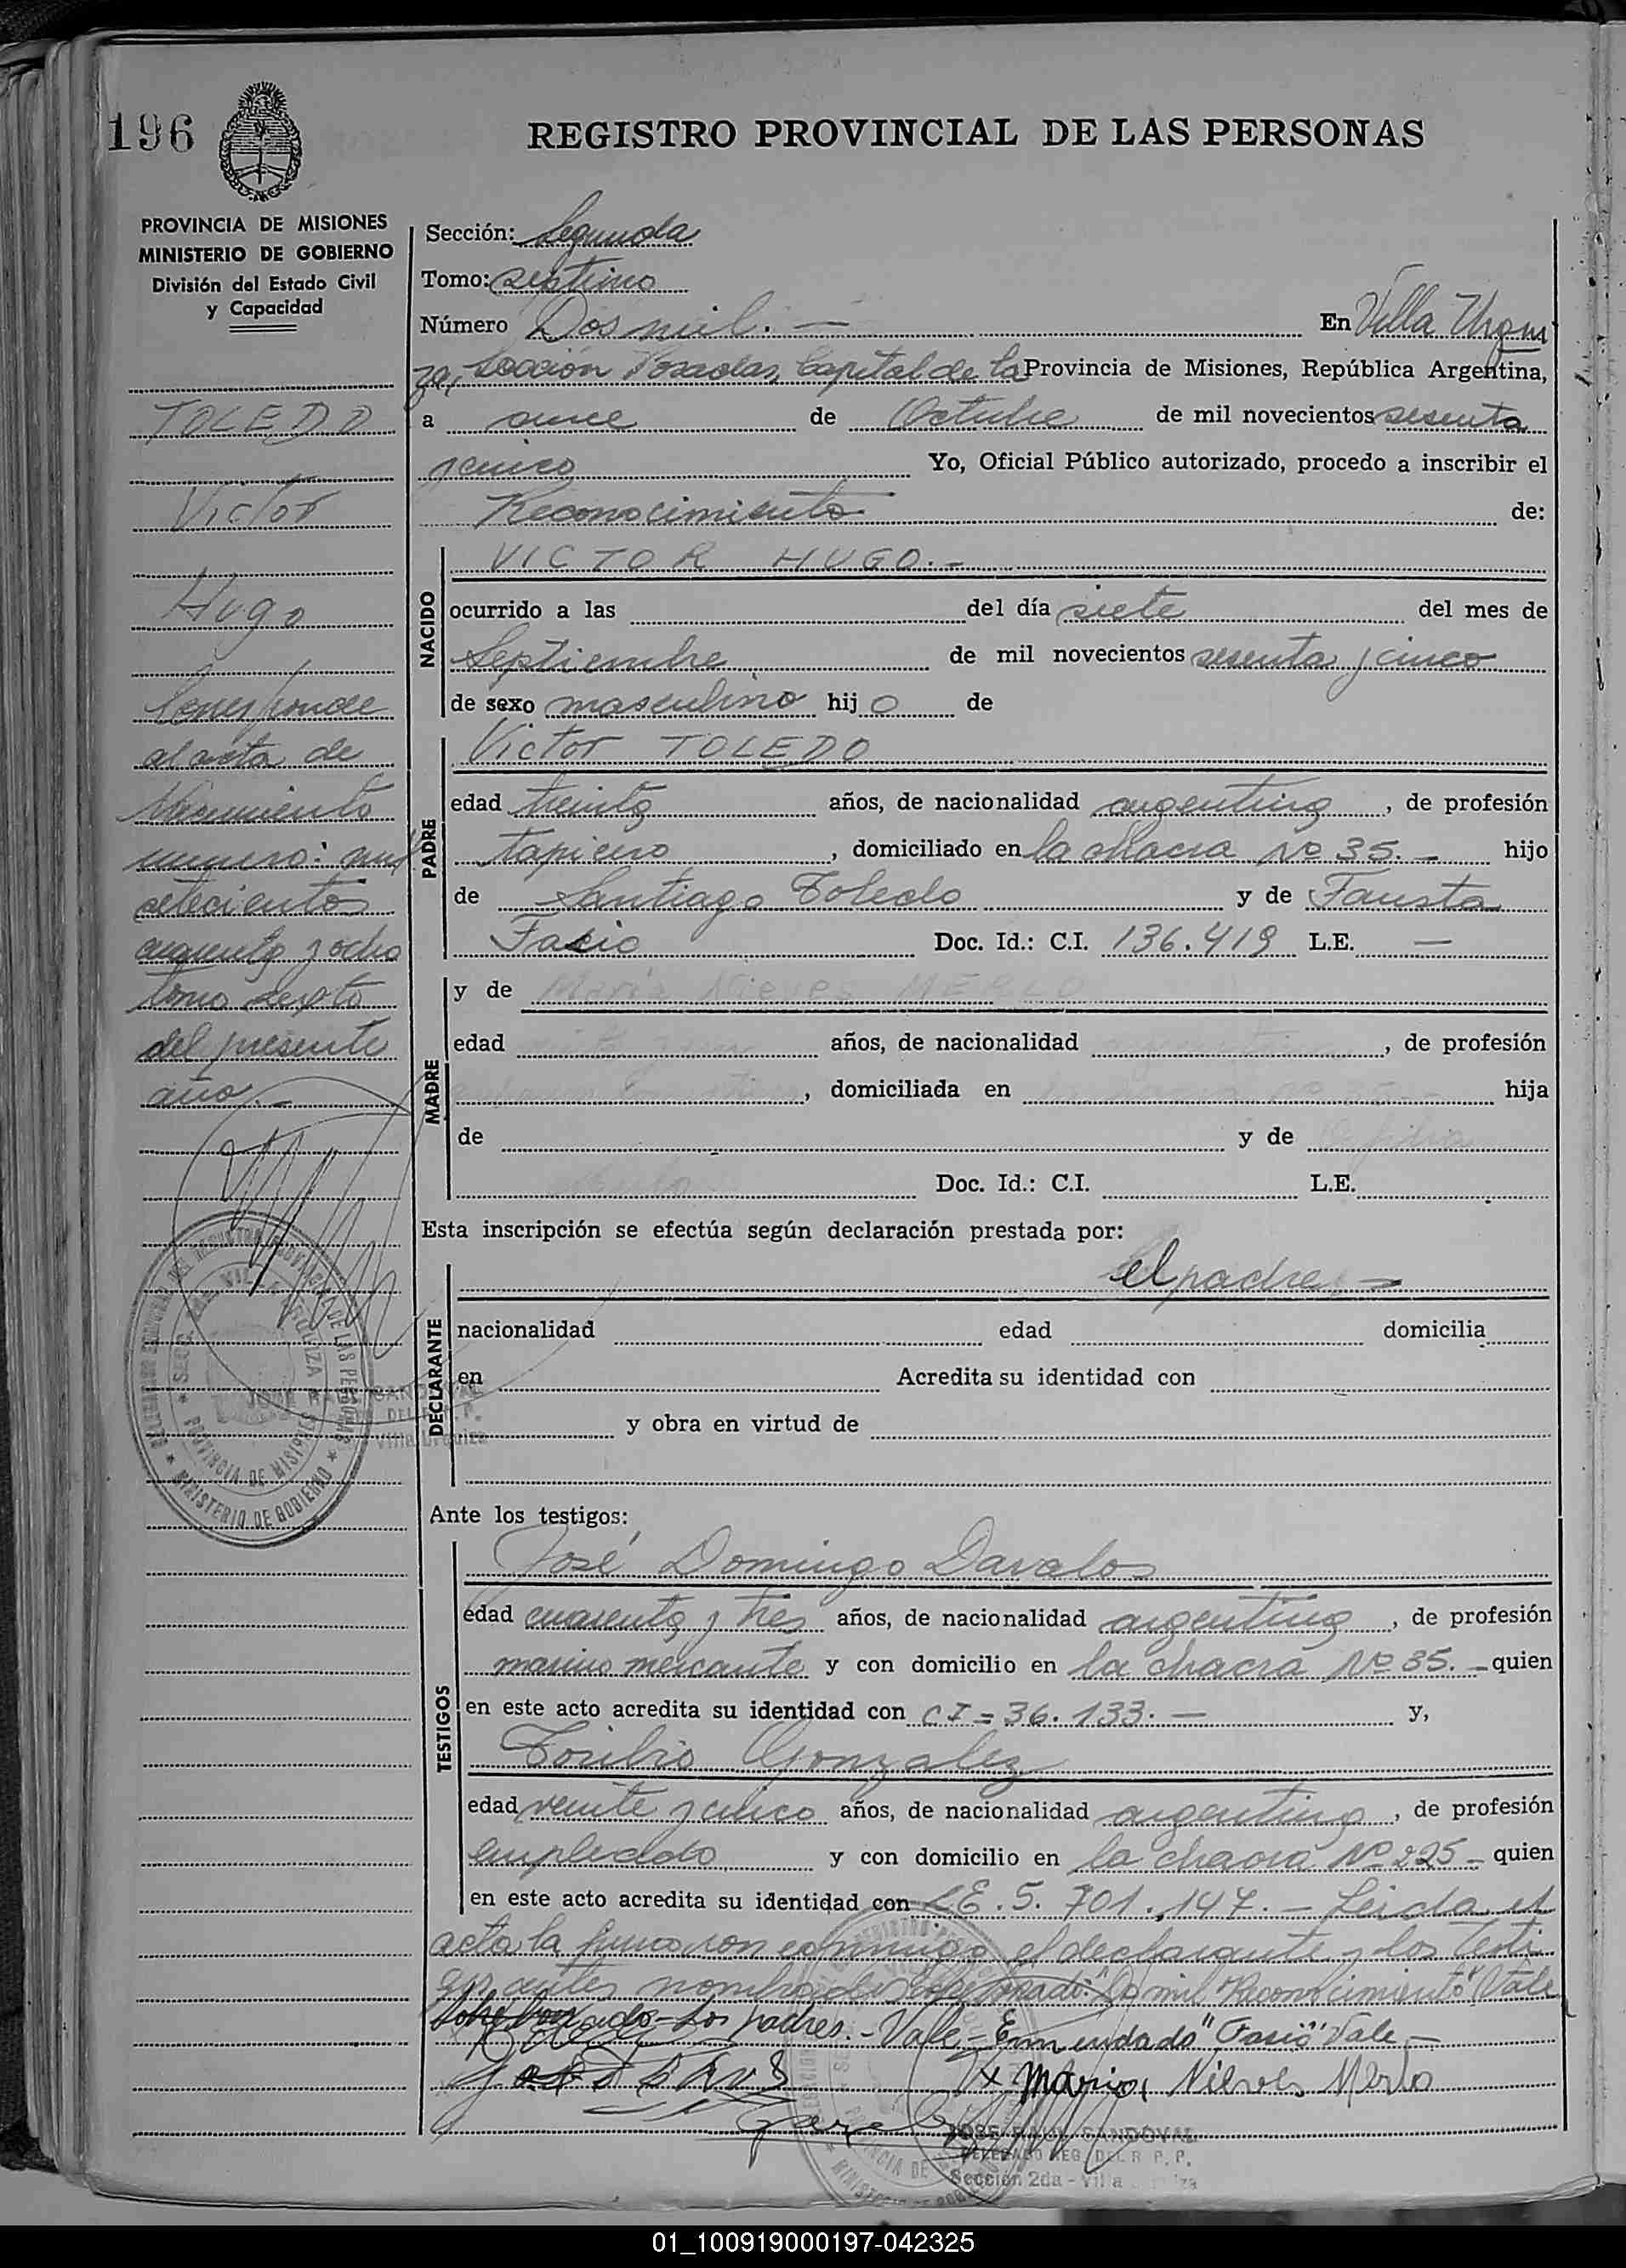 196
REGISTRO PROVINCIAL DE LAS PERSONAS
PROVINCIA DE MISIONES
MINISTERIO DE GOBIERNO
División del Estado Civil
y Capacidad
TOLEDO
Victor
Hugo
Corresponde
al acta de
Nacimiento
número: mil
setecientos
cincuenta y ocho
tomo sexto
del presente
año.-
Sección: Segunda
Tomo: septimo
Número Dos mil. — En Villa Urqui
za, Sección Posadas, Capital de la Provincia de Misiones, República Argentina,
a once de Octubre de mil novecientos sesenta
y cinco Yo, Oficial Público autorizado, procedo a inscribir el
Reconocimiento de:
NACIDO
VICTOR HUGO.-
ocurrido a las del día siete del mes de
Septiembre de mil novecientos sesenta y cinco
de sexo masculino hijo de
PADRE
Victor TOLEDO
edad treinta años, de nacionalidad argentina, de profesión
tapicero, domiciliado en la chacra Nº 35.- hijo
de Santiago Toledo y de Fausta
Facio Doc. Id.: C.I. 136.419 L.E. —
MADRE
y de María Nieves MERLO
edad años, de nacionalidad , de profesión
, domiciliada en hija
de y de
Doc. Id.: C.I. L.E.
Esta inscripción se efectúa según declaración prestada por:
DECLARANTE
el padre
nacionalidad edad domicilia
en Acredita su identidad con
y obra en virtud de
Ante los testigos:
TESTIGOS
José Domingo Davalos
edad cuarenta y tres años, de nacionalidad argentina, de profesión
marino mercante y con domicilio en la chacra Nº 35.- quien
en este acto acredita su identidad con CI = 36.133.— y,
Toribio Gonzalez
edad veinte y cinco años, de nacionalidad argentina, de profesión
empleado y con domicilio en la chacra Nº 225- quien
en este acto acredita su identidad con LE.5.701.147.- Leida el
acta la firmaron conmigo el declarante y los testi
gos antes nombrados mil "Reconocimiento" Vale
Sobre borrado-Los padres.-Vale-Enmendado "Facio" Vale-
x Maria Nieves Merlo
JOSE RAUL SANDOVAL
DELEGADO REG. DEL R. P. P.
Sección 2da - Villa
MINISTERIO DE GOBIERNO
PROVINCIA DE MISIONES
01_100919000197-042325